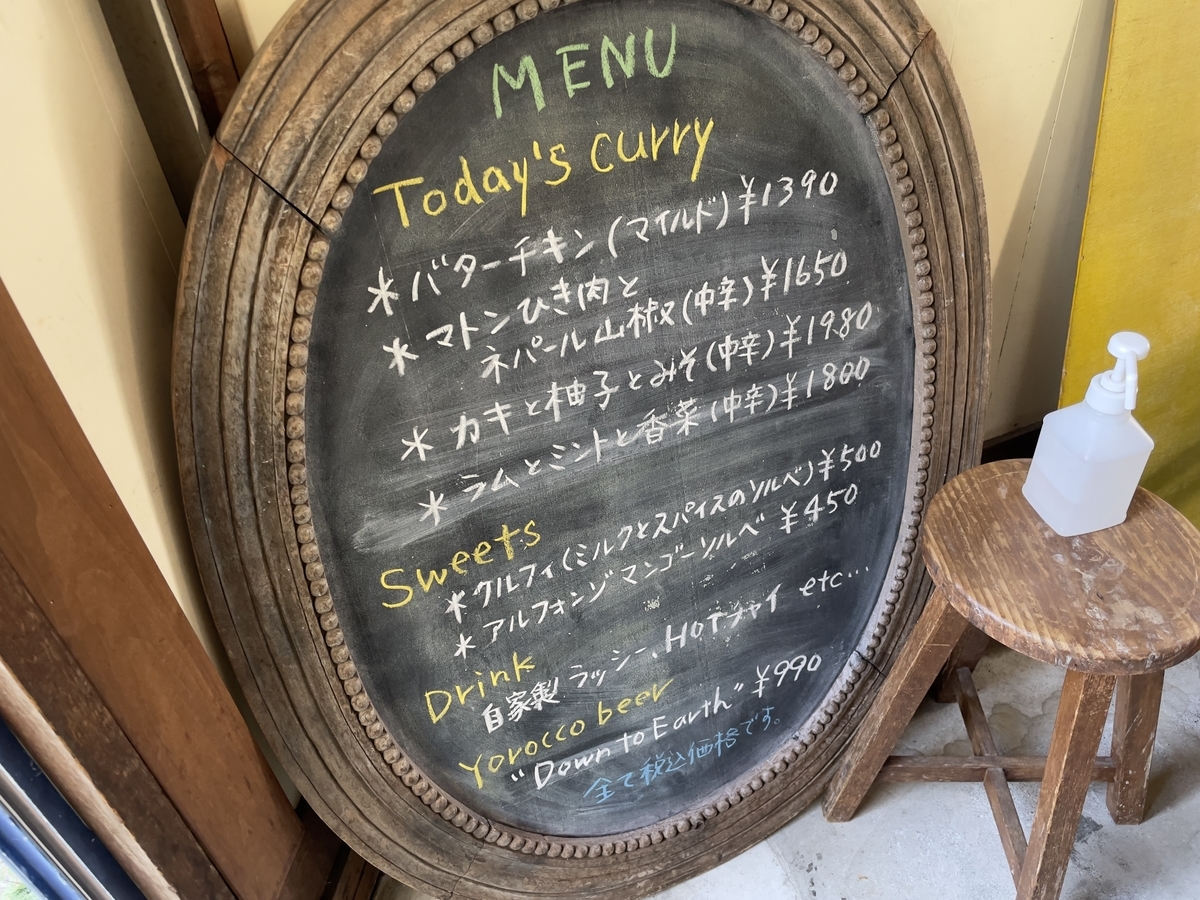 MENU
Today's curry
* バターチキン(マイルド)¥1390
* マトンひき肉と
ネパール山椒(中辛)¥1650
* カキと柚子とみそ(中辛)¥1980
* ラムとミントと香菜(中辛)¥1800
Sweets
* クルフィ(ミルクとスパイスのソルベ)¥500
* アルフォンゾマンゴーソルベ ¥450
Drink
自家製ラッシー、HOTチャイ etc...
Yorocco beer
"Down to Earth" ¥990
全て税込価格です。